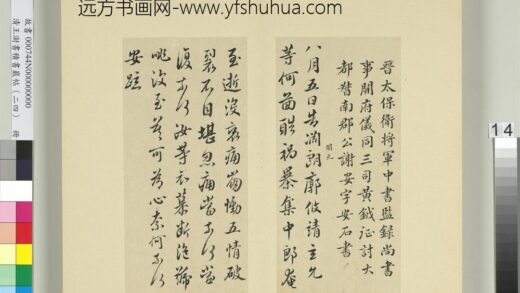 远方书画网-www.yfshuhua.com
晉太保衛將軍中書監錄尚書
事開府儀同三司黃鉞征討大
都督南郡公謝安字安石書
八月五日告淵朗廓攸靖玄允
等何圖酷禍暴集中郎奄
至逝沒哀痛崩慟五情破
裂不自堪忍痛當奈何當
復奈何汝等哀慕斷絕號
咷深至豈可為心奈何奈何
安疏
故書 000744N000000000
清王澍書積書巖帖(二四) 冊
14